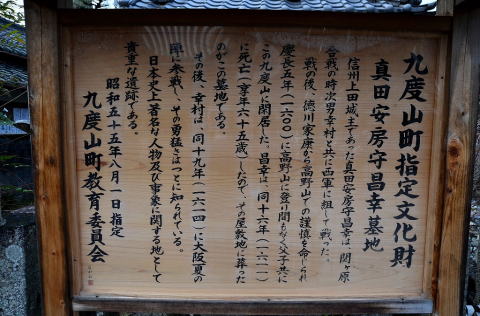 九度山町指定文化財
真田安房守昌幸墓地
信州上田城主であった真田安房守昌幸は、関ヶ原
合戦の時次男幸村と共に西軍に組して戦った。
戦の後、徳川家康から高野山での謹慎を命じられ
慶長五年(一六〇〇)に高野山に登り間もなく父子共に
この九度山に閑居した。昌幸は、同十六年(一六一一)
に死亡(享年六十五歳)したので、その屋敷地に葬った
のが、この墓地である。
その後、幸村は、同十九年(一六一四)に大阪夏の
陣に参戦し、その勇猛さはつとに知られている。
日本史上著名な人物及び事象に関する地として
貴重な遺跡である。
昭和五十五年八月一日指定
九度山町教育委員会